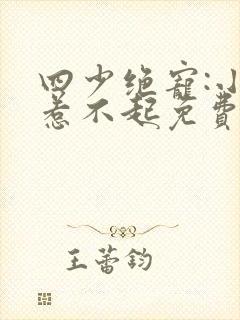 四少绝宠:小
惹不起免费
王蕾钧